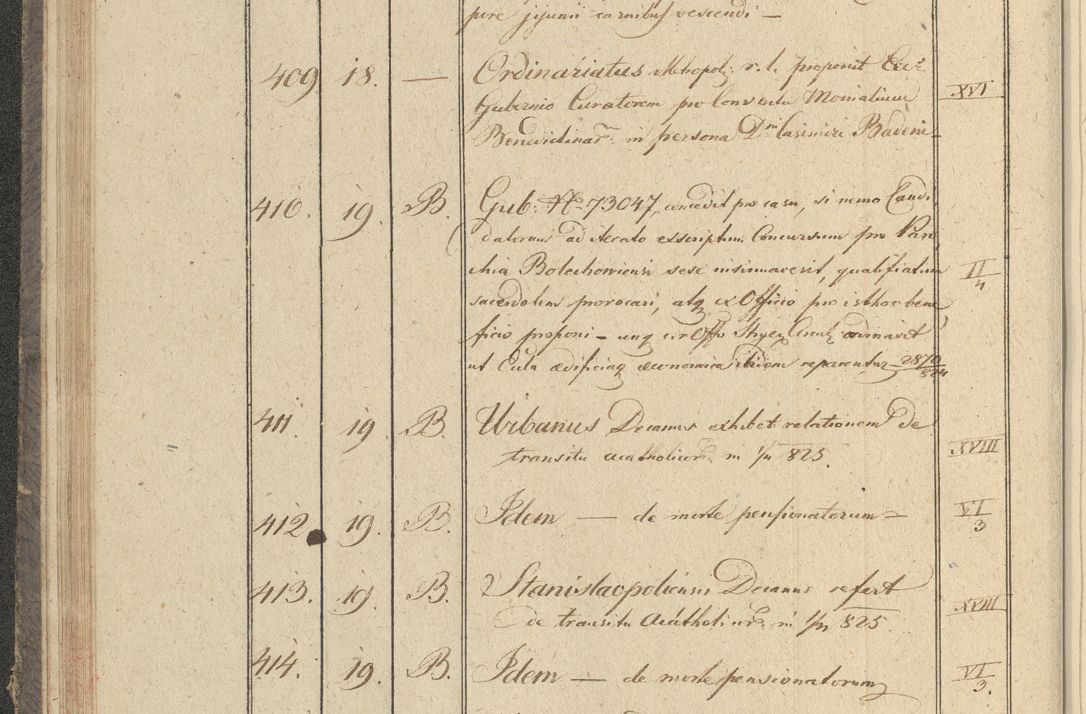 pore jejunii carnibus vescendi —
409 18. — Ordinariatus Metropol: r. l. proponit Exc:
Gubernio Curatorem pro Conventu Monialium XVI
Benedictinar: in persona Dni Casimiri Badeni —
410. 19. B. Gub: N 73047, concedit pro casu, si nemo Candi
datorum ad iterato exscriptum Concursum pro Paro
chia Bolechoviensi sese insinuaverit, qualificatum II/4
sacerdotem provocari, atq ex Officio pro isthoc bene
ficio proponi — unq Offo Circul: ordinavit
ut aedificiaq oeconomica ibidem reparentur 2870/824
411. 19 B. Urbanus Decanus exhibet relationem de
transitu acatholicor: in 1/m 825. XVIII
412 19. B. Idem — de morte pensionatorum — VI/3
413. 19. B. Stanislaopoliensis Decanus refert
de transitu Acatholicor: in 1/m 825 XVIII
414. 19. B. Idem — de morte pensionatorum VI/3.